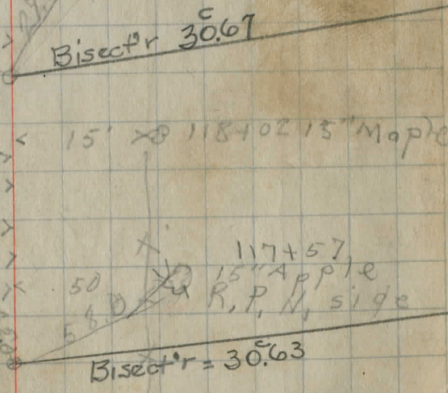 Bisect'r 30.67
c
15' 118+02 15" Maple
117+57
15" Apple
50
R, P, N, side
58.0
c
Bisect'r = 30.63